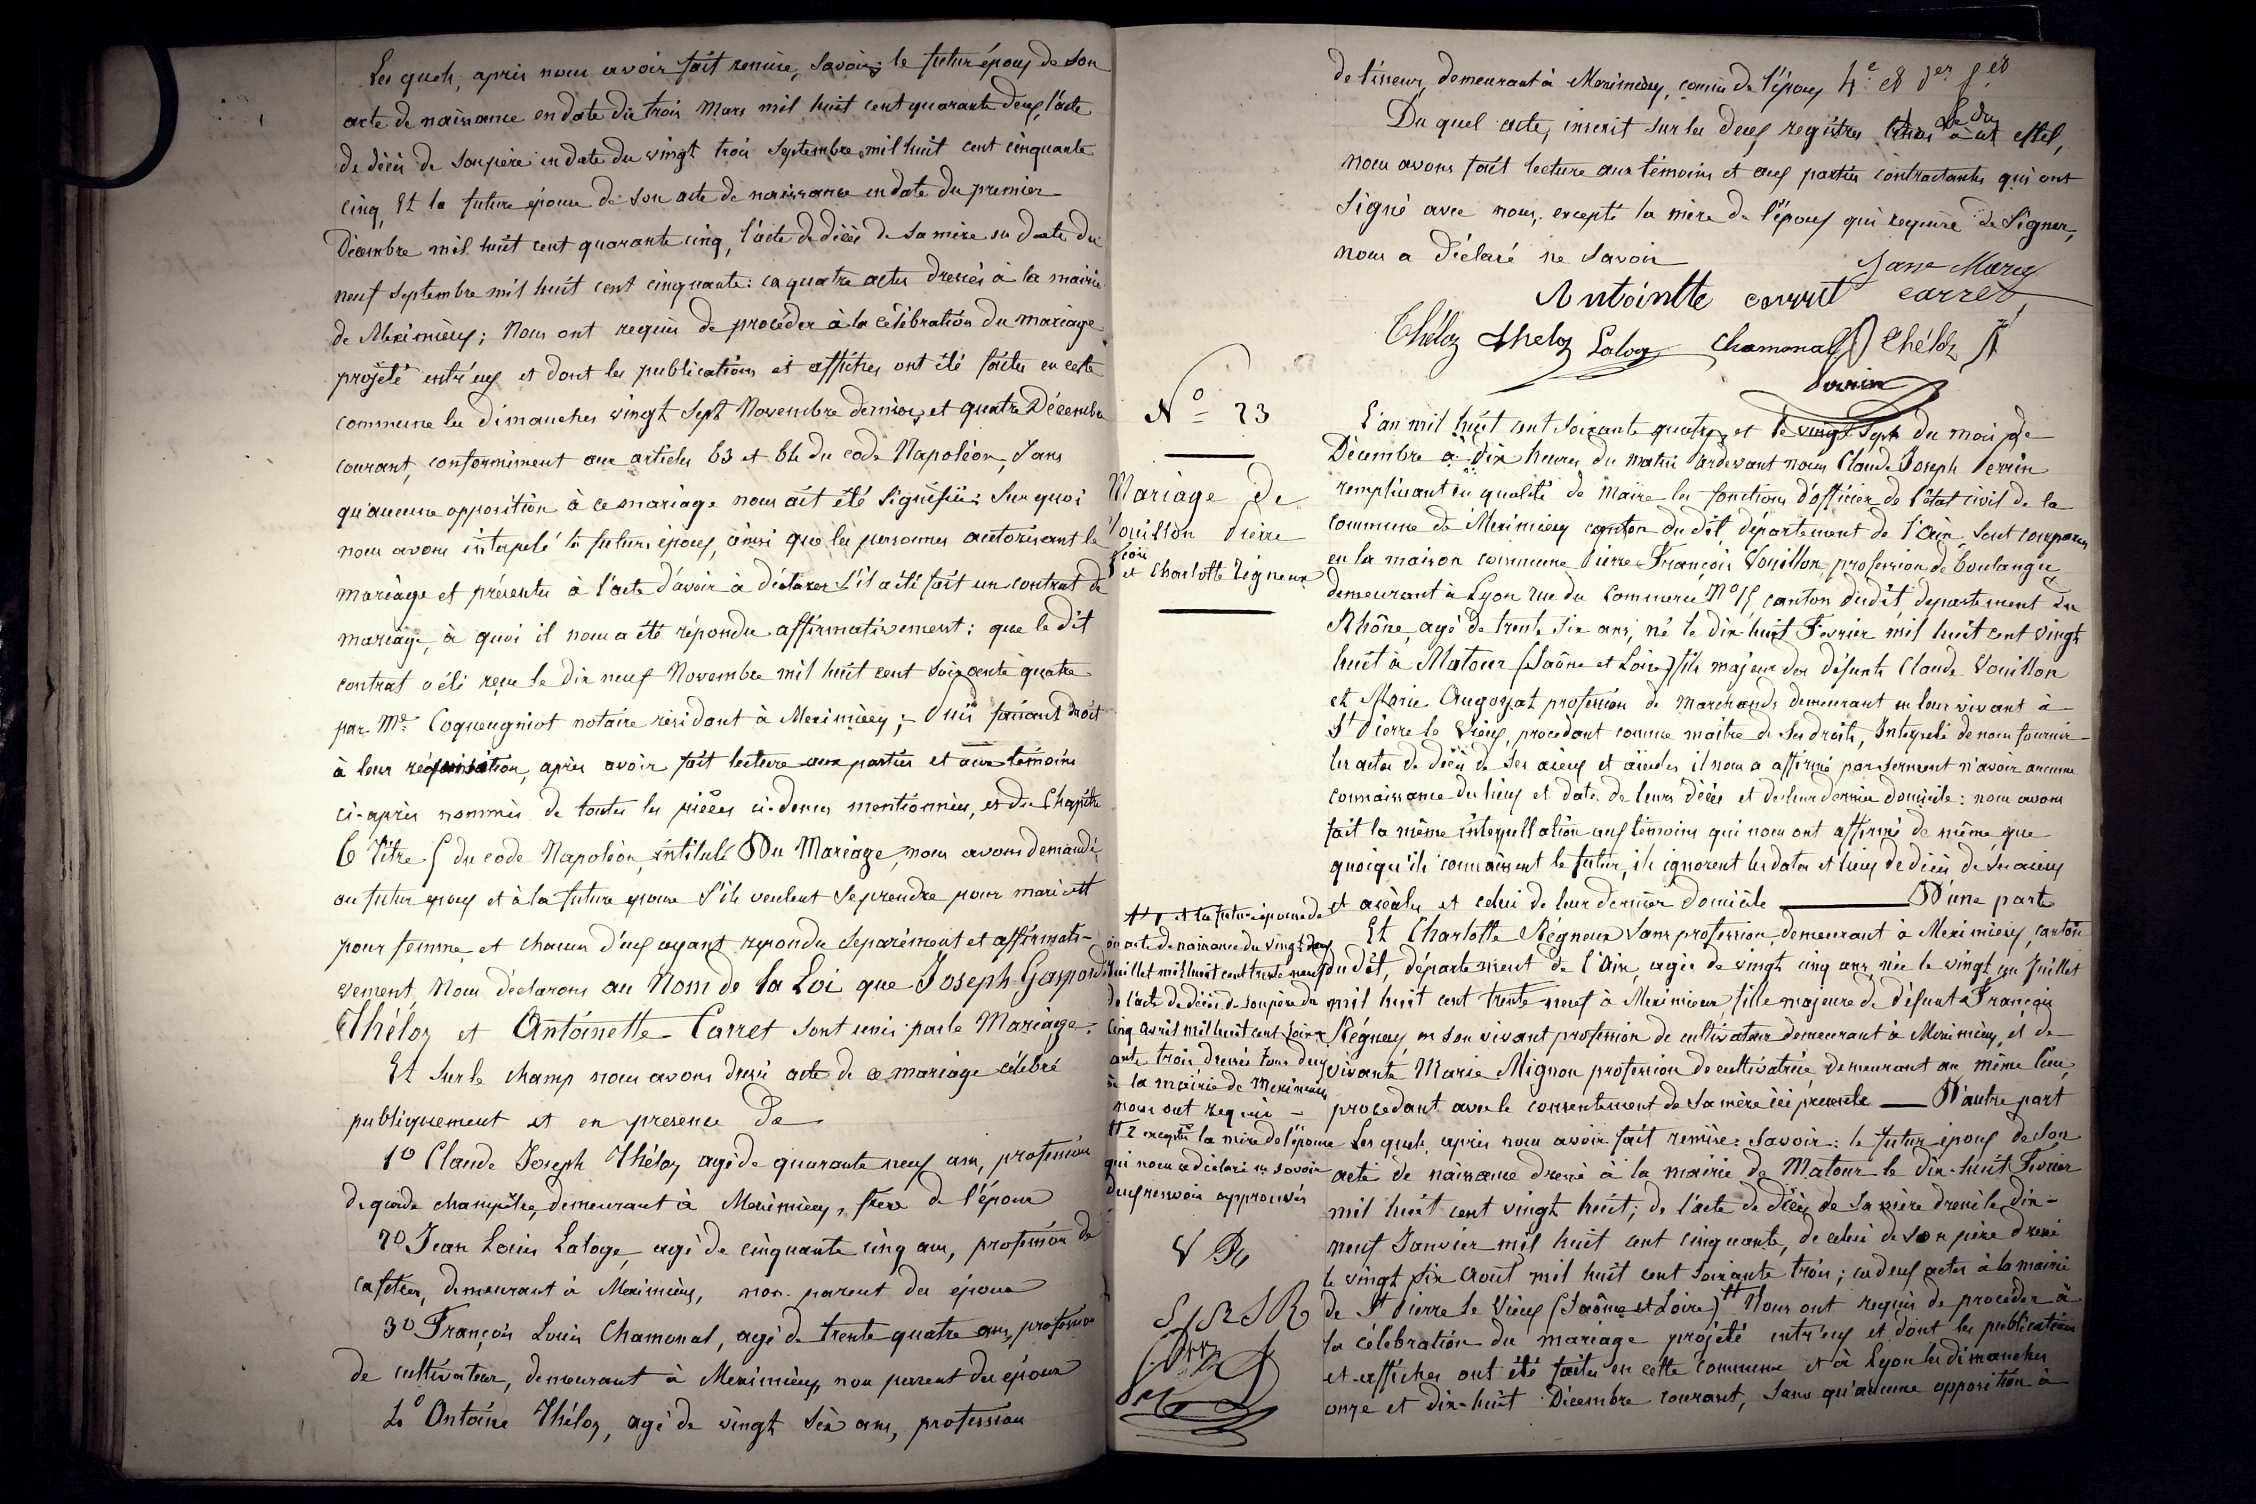 Les quels, après nous avoir fait remise, savoir: le futur époux de son
acte de naissance en date du trois Mars mil huit cent quarante deux, l'acte
de décès de son père en date du vingt trois Septembre mil huit cent cinquante
cinq, Et la future épouse de son acte de naissance en date du premier
Décembre mil huit cent quarante cinq, l'acte de décès de sa mère en date du
neuf Septembre mil huit cent cinquante: ces quatre actes dressés à la mairie
de Meximieux; Nous ont requis de procéder à la célébration du mariage
projeté entr'eux et dont les publications et affiches ont été faites en cette
commune les dimanches vingt Sept Novembre dernier, et quatre Décembre
courant, conformément aux articles 63 et 64 du code Napoléon, Sans
qu'aucune opposition à ce mariage nous ait été Signifiée: Sur quoi
nous avons interpelé les futurs époux, ainsi que les personnes autorisant le
mariage et présentes à l'acte d'avoir à déclarer s'il a été fait un contrat de
mariage, à quoi il nous a été répondu affirmativement: que le dit
contrat a été reçu le dix neuf Novembre mil huit cent soixante quatre
par Me Coqueugniot notaire résidant à Meximieux; Puis faisant droit
à leur réquisition, après avoir fait lecture aux parties et aux témoins
ci-après nommés de toutes les pièces ci-dessus mentionnées, et du Chapitre
6 Titre 5 du code Napoléon, intitulé Du Mariage, nous avons demandé
au futur époux et à la future épouse s'ils veulent se prendre pour mari et
pour femme, et chacun d'eux ayant répondu Séparément et affirmati-
vement, Nous déclarons au Nom de la Loi que Joseph Gaspard
Théloz et Antoinette Carret sont unis par le Mariage.
Et Sur le champ nous avons dressé acte de ce mariage célébré
publiquement et en présence de
1o Claude Joseph Théloz agé de quarante neuf ans, profession
de garde champêtre, demeurant à Meximieux, frère de l'époux
2o Jean Louis Laloge, agé de cinquante cinq ans, profession de
cafetier, demeurant à Meximieux, non parent des époux
3o François Louis Chamonal, agé de trente quatre ans, profession
de cultivateur, demeurant à Meximieux, non parent des époux
4o Antoine Théloz, agé de vingt Six ans, profession
de tisseur, demeurant à Meximieux, cousin de l'époux
Du quel acte, inscrit sur les deux registres tenus à cet effet,
nous avons fait lecture aux témoins et aux parties contractantes qui ont
Signé avec nous, excepté la mère de l'époux qui requise de Signer,
nous a déclaré ne savoir
Antointte carret carret
Théloz Theloz Chamonal Théloz
Perrin
No 23
Mariage de
Vouillon Pierre
Fçois et Charlotte Régneux
L'an mil huit cent soixante quatre, et le vingt Sept du mois de
Décembre à dix heures du matin Pardevant nous Claude Joseph Perrin
remplissant en qualité de Maire les fonctions d'officier de l'état civil de la
commune de Meximieux canton du dit, département de l'Ain, sont comparus
en la maison commune Pierre François Vouillon, profession de boulanger
demeurant à Lyon rue du Commerce No 15, canton dudit, département du
Rhône, agé de trente Six ans, né le dix huit Fevrier mil huit cent vingt
huit à Matour (Saône et Loire) fils majeur des défunts Claude Vouillon
et Marie Augoyat profession de Marchands demeurant en leur vivant à
St Pierre le Vieux, procédant comme maître de Ses droits, Interpelé de nous fournir
les actes de décès de Ses aïeux et aïeules il nous a affirmé par Serment n'avoir aucune
connaissance du lieux et date de leurs décès et de leur dernier domicile: nous avons
fait la même interpellation aux témoins qui nous ont affirmé de même que
quoiqu'ils connaissent le futur, ils ignorent les dates et lieux de décès de Ses aïeux
et aïeules et celui de leur dernier domicile D'une part
Et Charlotte Régneux Sans profession, demeurant à Meximieux, canton
du dit, département de l'Ain, agée de vingt cinq ans, née le vingt un Juillet
mil huit cent trente neuf à Meximieux, fille majeure de défunt François
Régneux, en son vivant profession de cultivateur demeurant à Meximieux, et de
vivante Marie Mignon profession de cultivatrice, demeurant au même lieu,
procédant avec le consentement de sa mère ici présente D'autre part
Les quels, après nous avoir fait remise: Savoir: le futur époux de Son
acte de naissance dressé à la mairie de Matour le dix-huit Fevrier
mil huit cent vingt huit; de l'acte de décès de Sa mère dressé le dix-
neuf Janvier mil huit cent cinquante, de celui de Son père dressé
le vingt Six Août mil huit cent Soixante trois; ces deux actes à la mairie
de St Pierre le Vieux (Saône et Loire) # Nous ont requis de procéder à
la célébration du mariage projeté entr'eux et dont les publications
et affiches ont été faites en cette commune et à Lyon les dimanches
onze et dix-huit Décembre courant, Sans qu'aucune opposition à
# 1 et la future épouse de
son acte de naissance du vingt deux
Juillet mil huit cent trente neuf
de l'acte de décès de son père du
cinq avril mil huit cent soix-
ante trois dressés tous deux
à la mairie de Meximieux
nous ont requis
# 2 excepté la mère de l'épouse
qui nous a déclaré ne savoir
deux renvois approuvés